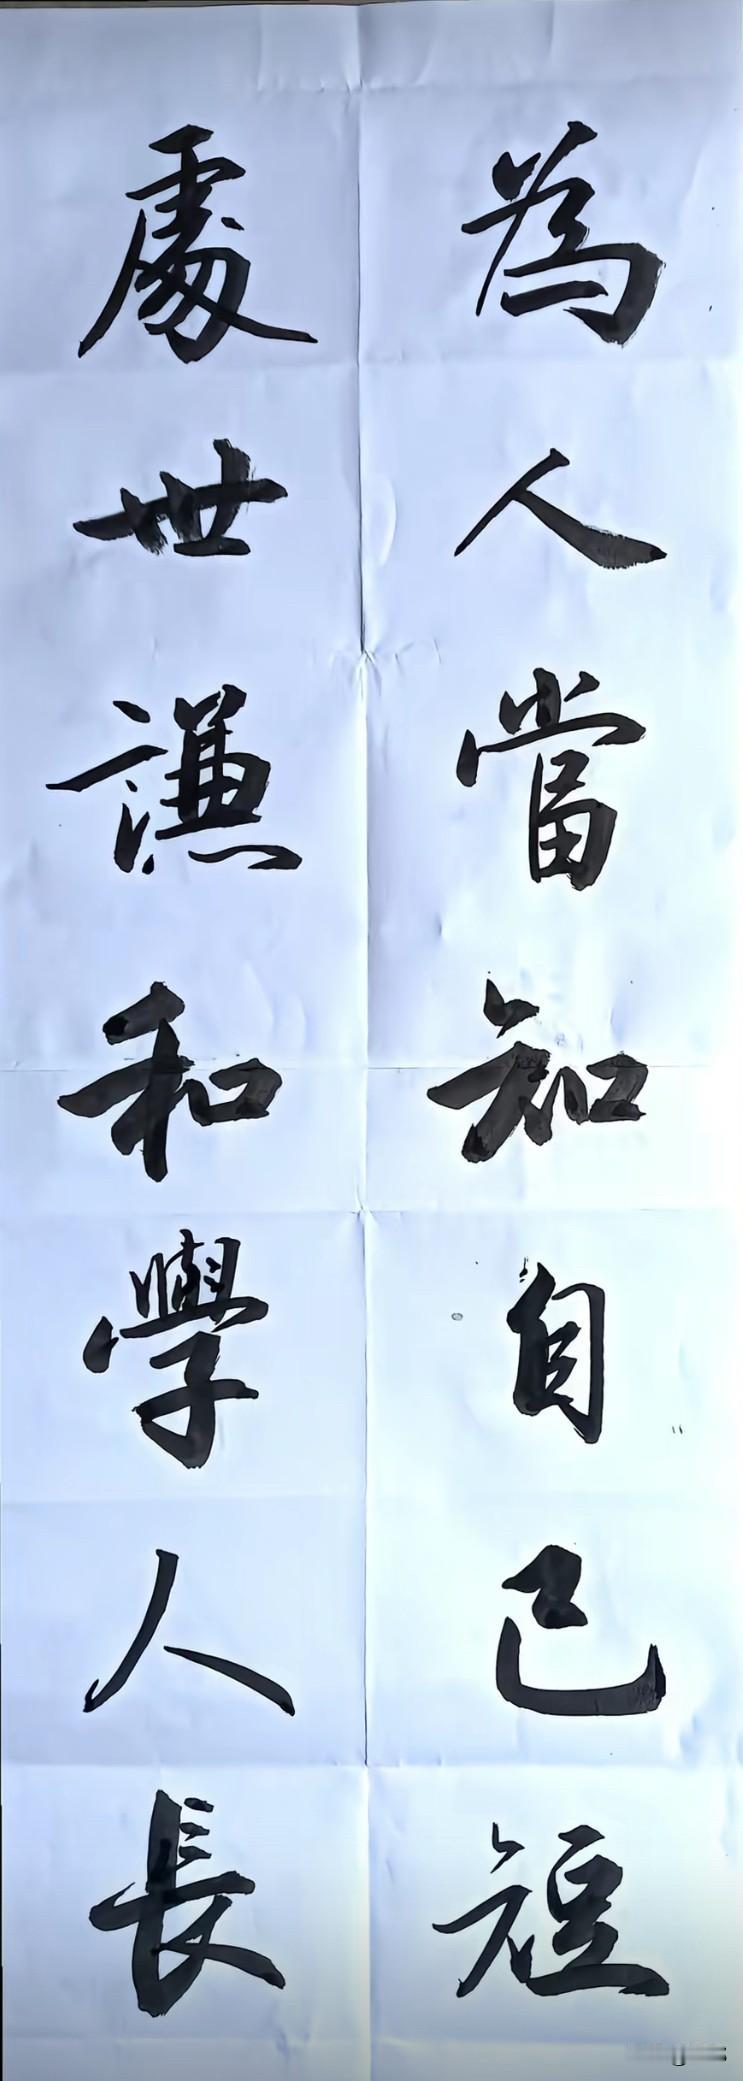 為人當知自己短
處世謙和學人長